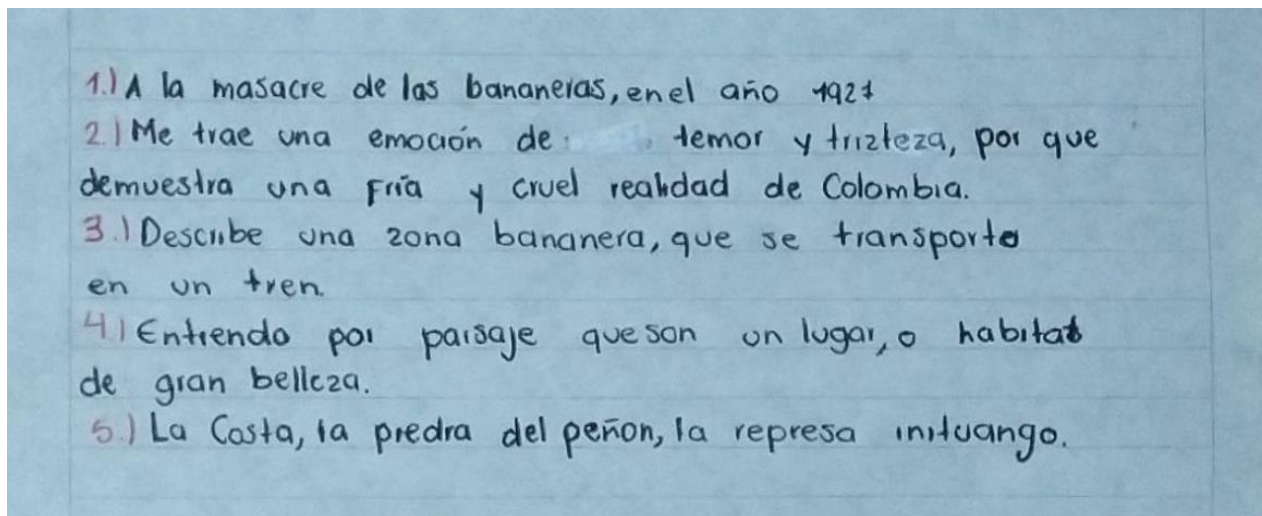 1.) A la masacre de las bananeras, en el año 1921
2.) Me trae una emoción de temor y trizteza, por que
demuestra una Fría y cruel realidad de Colombia.
3.) Describe una zona bananera, que se transporto
en un tren.
4.) Entiendo por paisaje que son un lugar, o habitat
de gran belleza.
5.) La Costa, la piedra del peñon, la represa inituango.